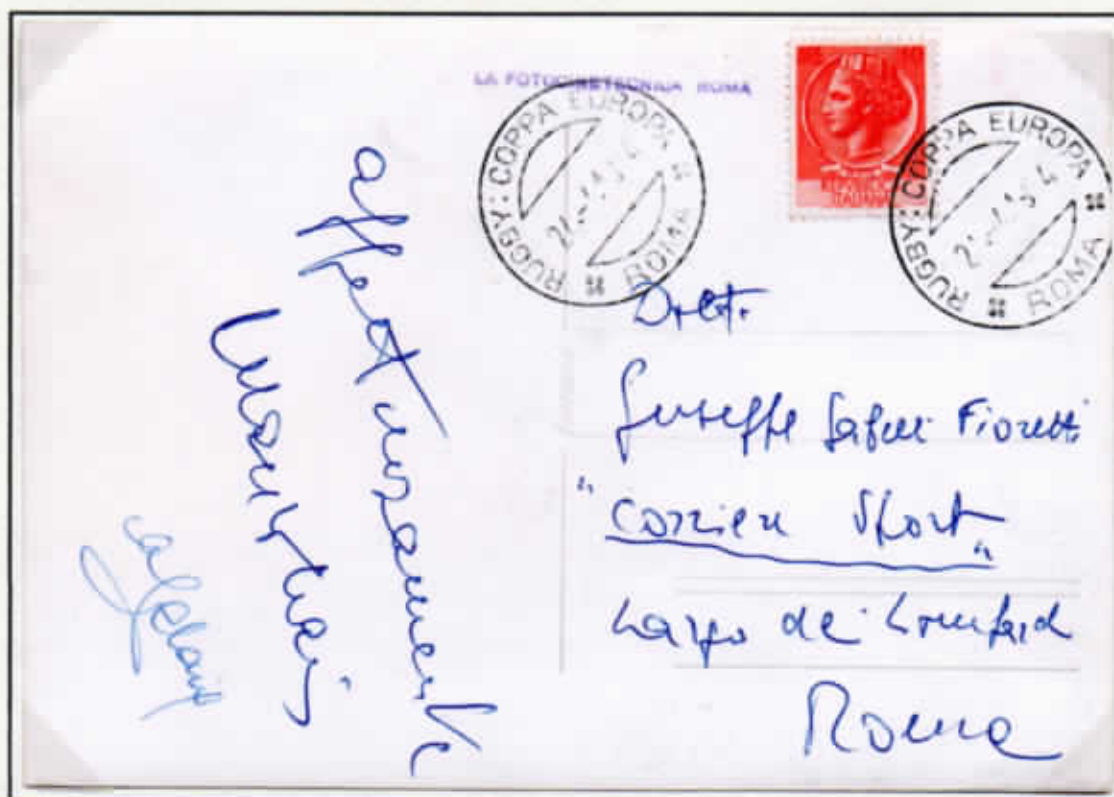 LA FOTOCINETECNICA ROMA
RUGBY: COPPA EUROPA ROMA
REPUBBLICA
ITALIANA
RUGBY: COPPA EUROPA ROMA
Dott.
Giuseppe Sabelli Fioretti
"Corriere Sport"
Largo dei Lombardi
Roma
affettuosamente